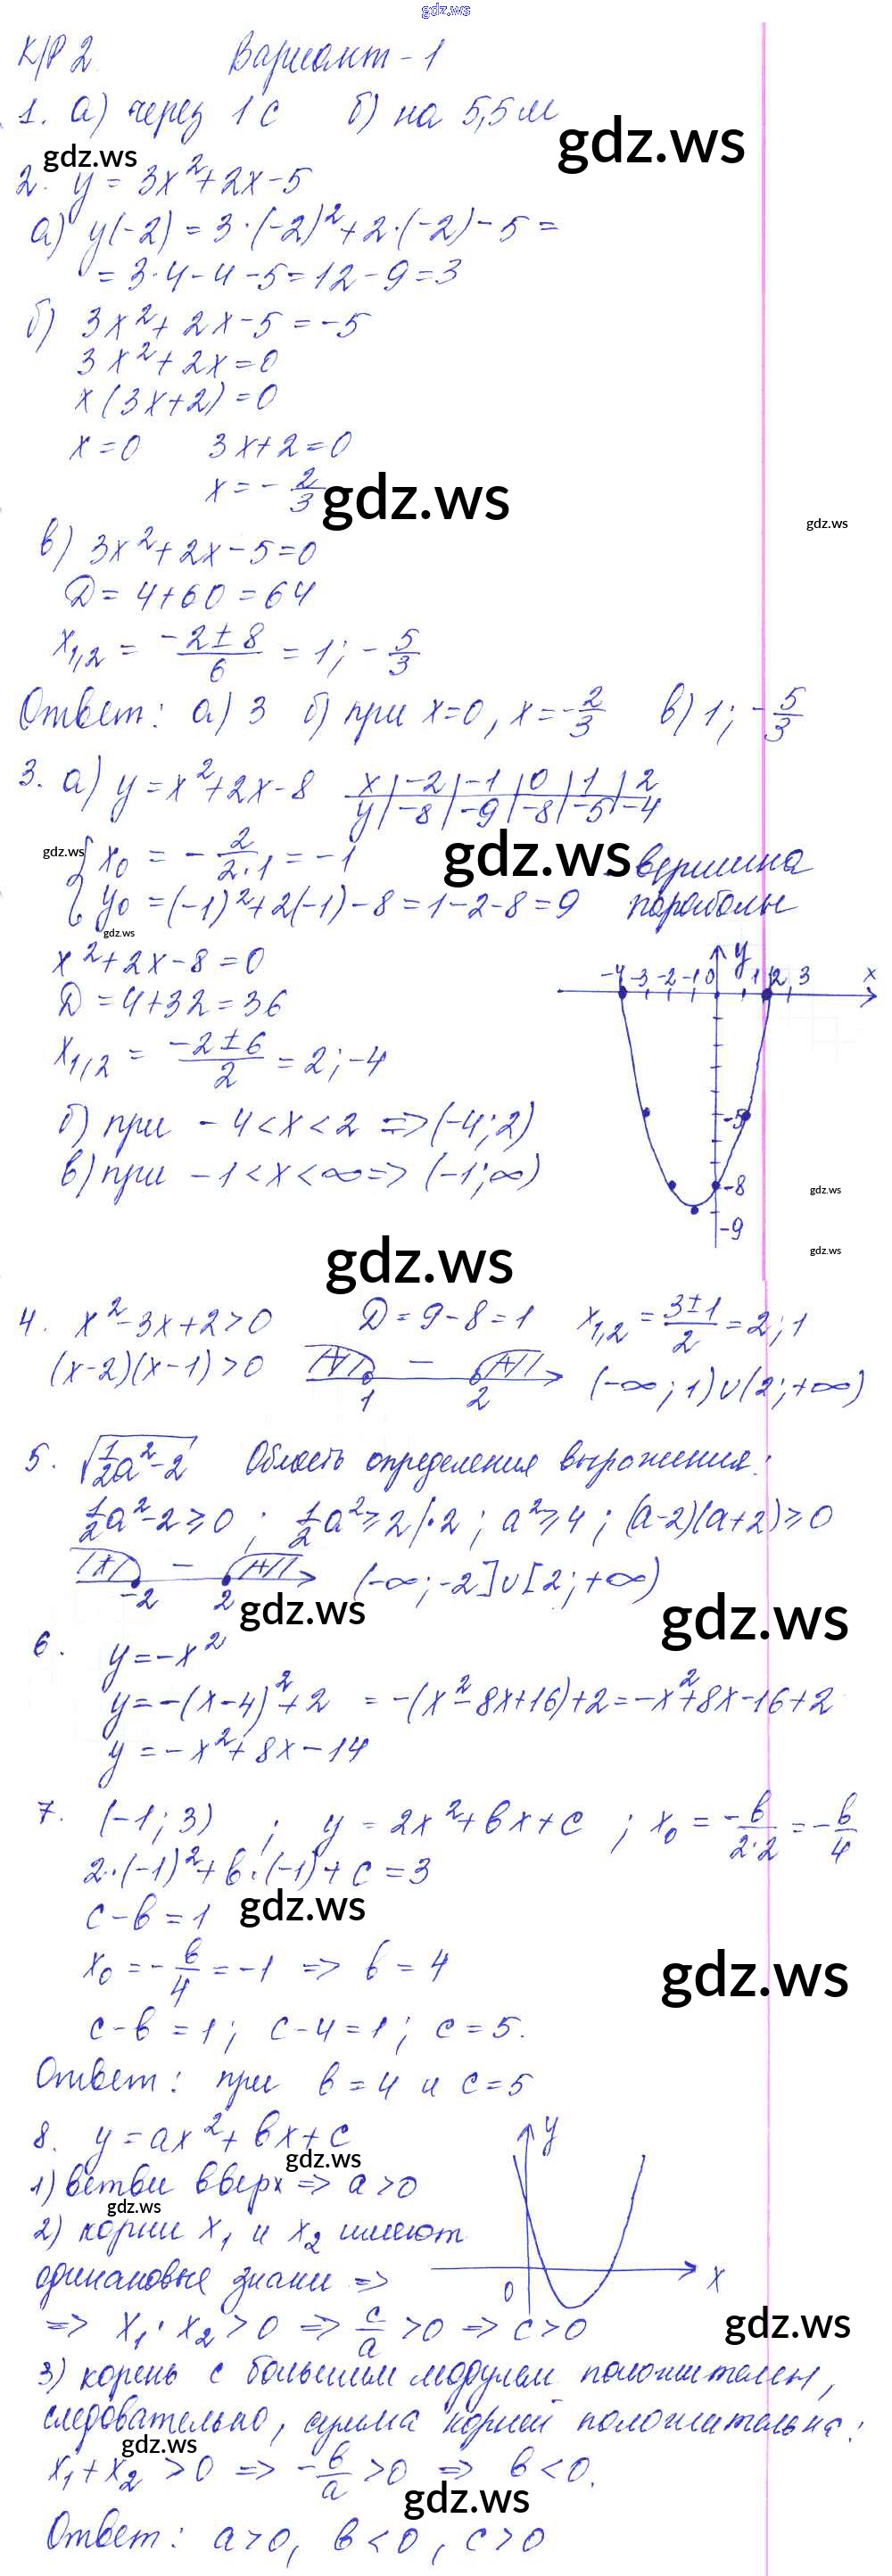 gdz.ws
К/Р 2 Вариант - 1
1. а) через 1 с б) на 5,5 м
gdz.ws
gdz.ws
2. y = 3x²+2x-5
а) y(-2) = 3·(-2)²+2·(-2)-5 =
= 3·4-4-5=12-9=3
б) 3x²+2x-5=-5
3x²+2x=0
x(3x+2)=0
x=0 3x+2=0
x=-2/3
gdz.ws
gdz.ws
в) 3x²+2x-5=0
D=4+60=64
x1,2 = (-2±8)/6 = 1; -5/3
Ответ: а) 3 б) при x=0, x=-2/3 в) 1; -5/3
3. а) y=x²+2x-8
x | -2 | -1 | 0 | 1 | 2
y | -8 | -9 | -8 | -5 | -4
gdz.ws
gdz.ws
{ x0 = -2/(2·1) = -1 - вершина
y0 = (-1)²+2(-1)-8=1-2-8=9 параболы
gdz.ws
x²+2x-8=0
D=4+32=36
x1,2 = (-2±6)/2 = 2; -4
y
-4 -3 -2 -1 0 1 2 3 x
-5
-8
-9
б) при -4<x<2 => (-4; 2)
в) при -1<x<∞ => (-1; ∞)
gdz.ws
gdz.ws
gdz.ws
4. x²-3x+2>0 D=9-8=1 x1,2 = (3±1)/2 = 2; 1
(x-2)(x-1)>0 + - + 1 2 (-∞; 1)∪(2; +∞)
5. √(1/2a²-2) Область определения выражения:
1/2a²-2≥0; 1/2a²≥2|·2; a²≥4; (a-2)(a+2)≥0
+ - + -2 2 (-∞; -2]∪[2; +∞)
gdz.ws
gdz.ws
6. y=-x²
y=-(x-4)²+2 = -(x²-8x+16)+2=-x²+8x-16+2
y=-x²+8x-14
7. (-1; 3) ; y = 2x²+bx+c ; x0 = -b/(2·2) = -b/4
2·(-1)²+b·(-1)+c=3
c-b=1
gdz.ws
gdz.ws
x0=-b/4=-1 => b=4
c-b=1; c-4=1; c=5.
Ответ: при b=4 и c=5
8. y=ax²+bx+c
y
x
0
gdz.ws
1) ветви вверх => a>0
gdz.ws
2) корни x1 и x2 имеют
одинаковые знаки =>
gdz.ws
=> x1·x2>0 => c/a>0 => c>0
3) корень с большим модулем положителен,
следовательно, сумма корней положительна:
gdz.ws
x1+x2>0 => -b/a>0 => b<0.
gdz.ws
Ответ: a>0, b<0, c>0